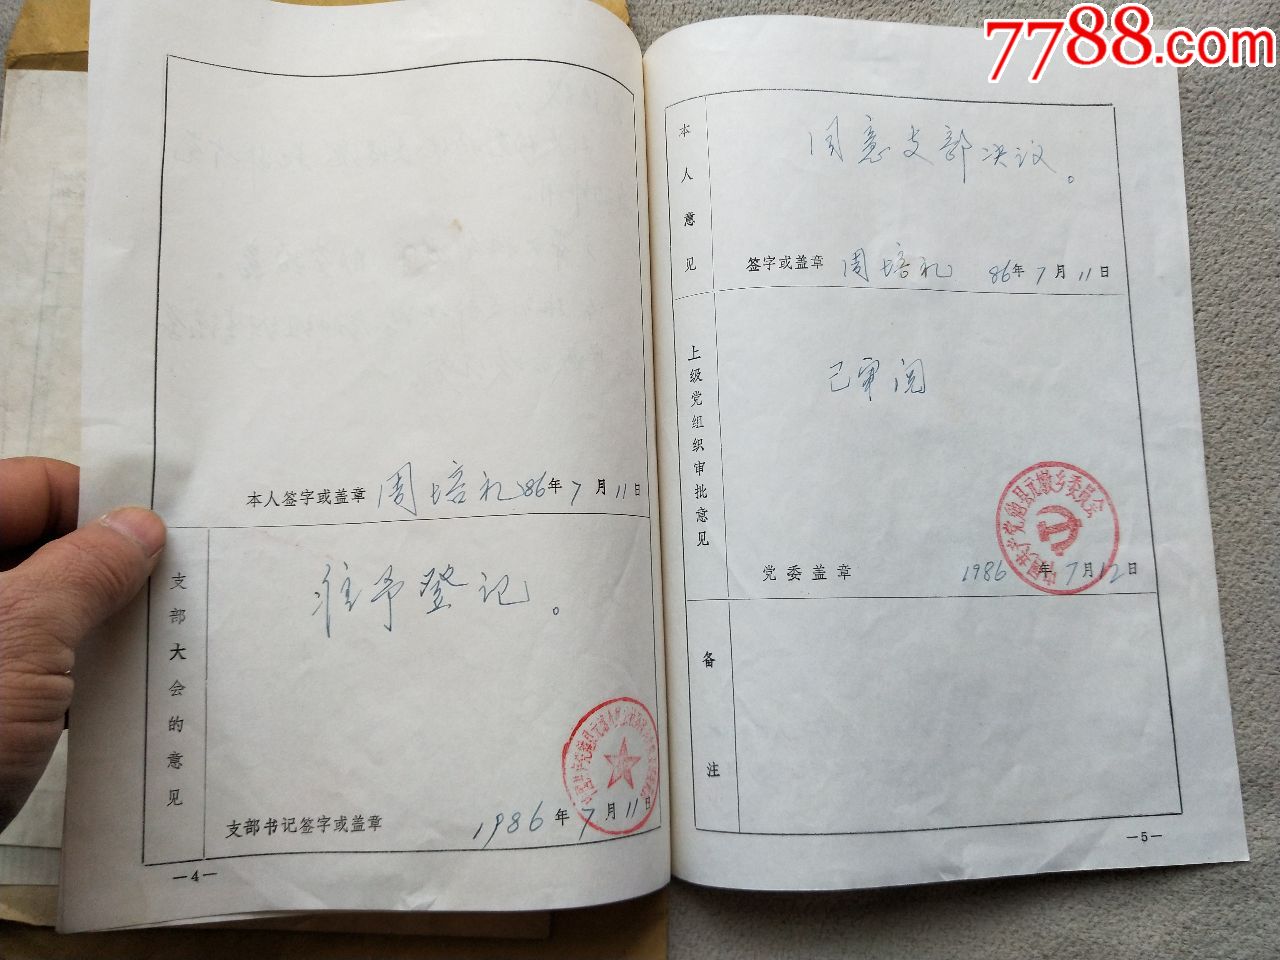 7788.com
本人签字或盖章 周培礼 86年7月11日
支部大会的意见
准予登记。
支部书记签字或盖章
1986年7月11日
—4—
本人意见
同意支部决议。
签字或盖章 周培礼 86年7月11日
上级党组织审批意见
已审阅
中国共产党勉县元墩乡委员会
党委盖章 1986年7月12日
备注
—5—